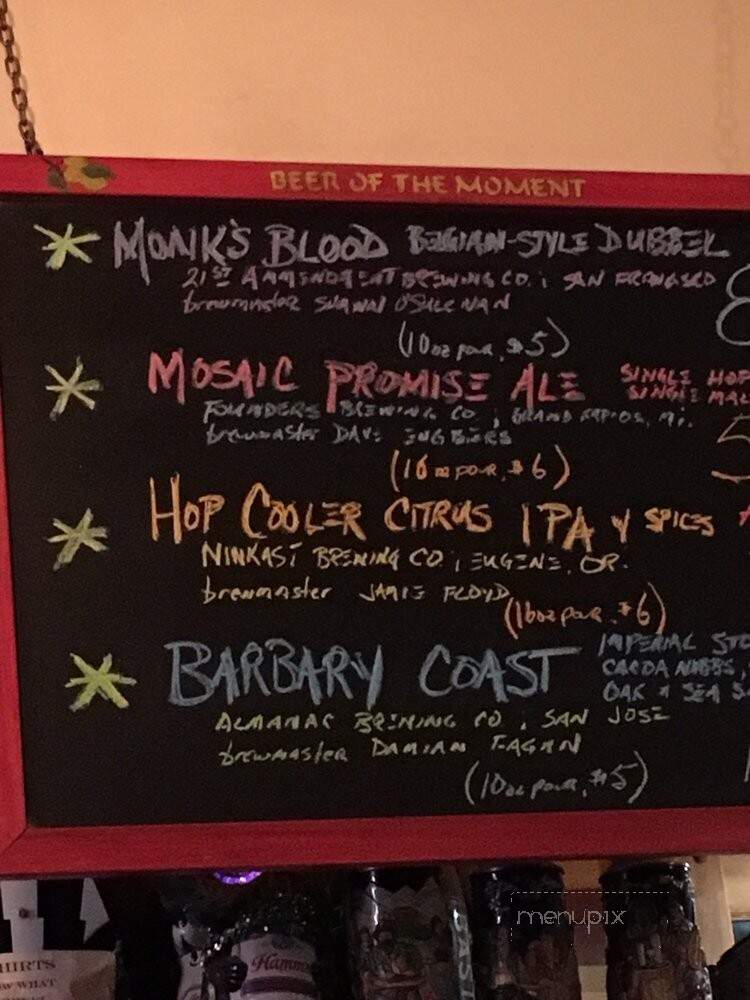 BEER OF THE MOMENT
MONK'S BLOOD BELGIAN-STYLE DUBBEL
21ST AMMENDMENT BREWING CO. ; SAN FRANCISCO
brewmaster SHAWN O'SULLIVAN
(10oz pour, $5)
MOSAIC PROMISE ALE SINGLE HOP
SINGLE MAL
FOUNDERS BREWING CO ; GRAND RAPIDS, MI.
brewmaster DAVE ENGBERS
(16oz pour, $6)
HOP COOLER CITRUS IPA w SPICES
NINKASI BREWING CO ; EUGENE, OR.
brewmaster JAMIE FLOYD
(16oz pour, $6)
BARBARY COAST IMPERIAL STO
CACOA NIBBS,
OAK & SEA S
ALMANAC BREWING CO ; SAN JOSE
brewmaster DAMIAN FAGAN
(10oz pour, $5)
menupix
HIRTS
W WHAT
Hamm